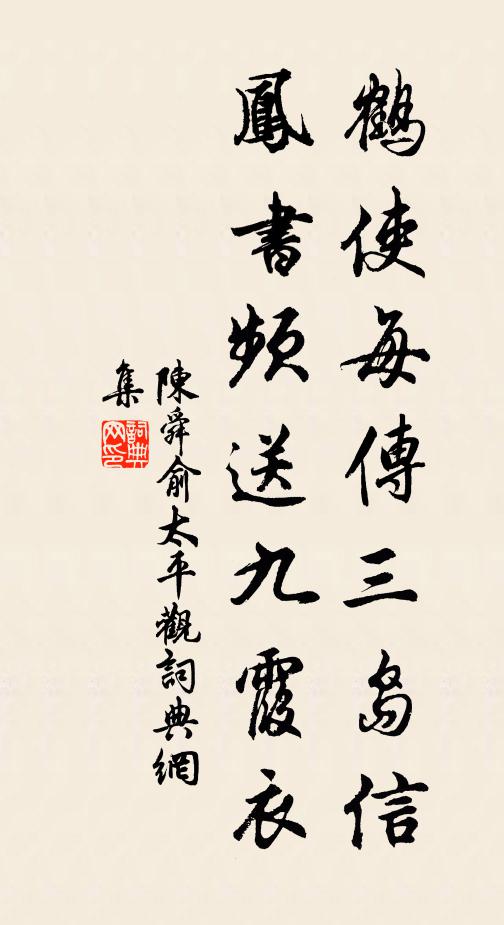 鶴使每傳三島信
鳳書頻送九霞衣
陳舜俞太平觀詞典網
集
詞典
网印